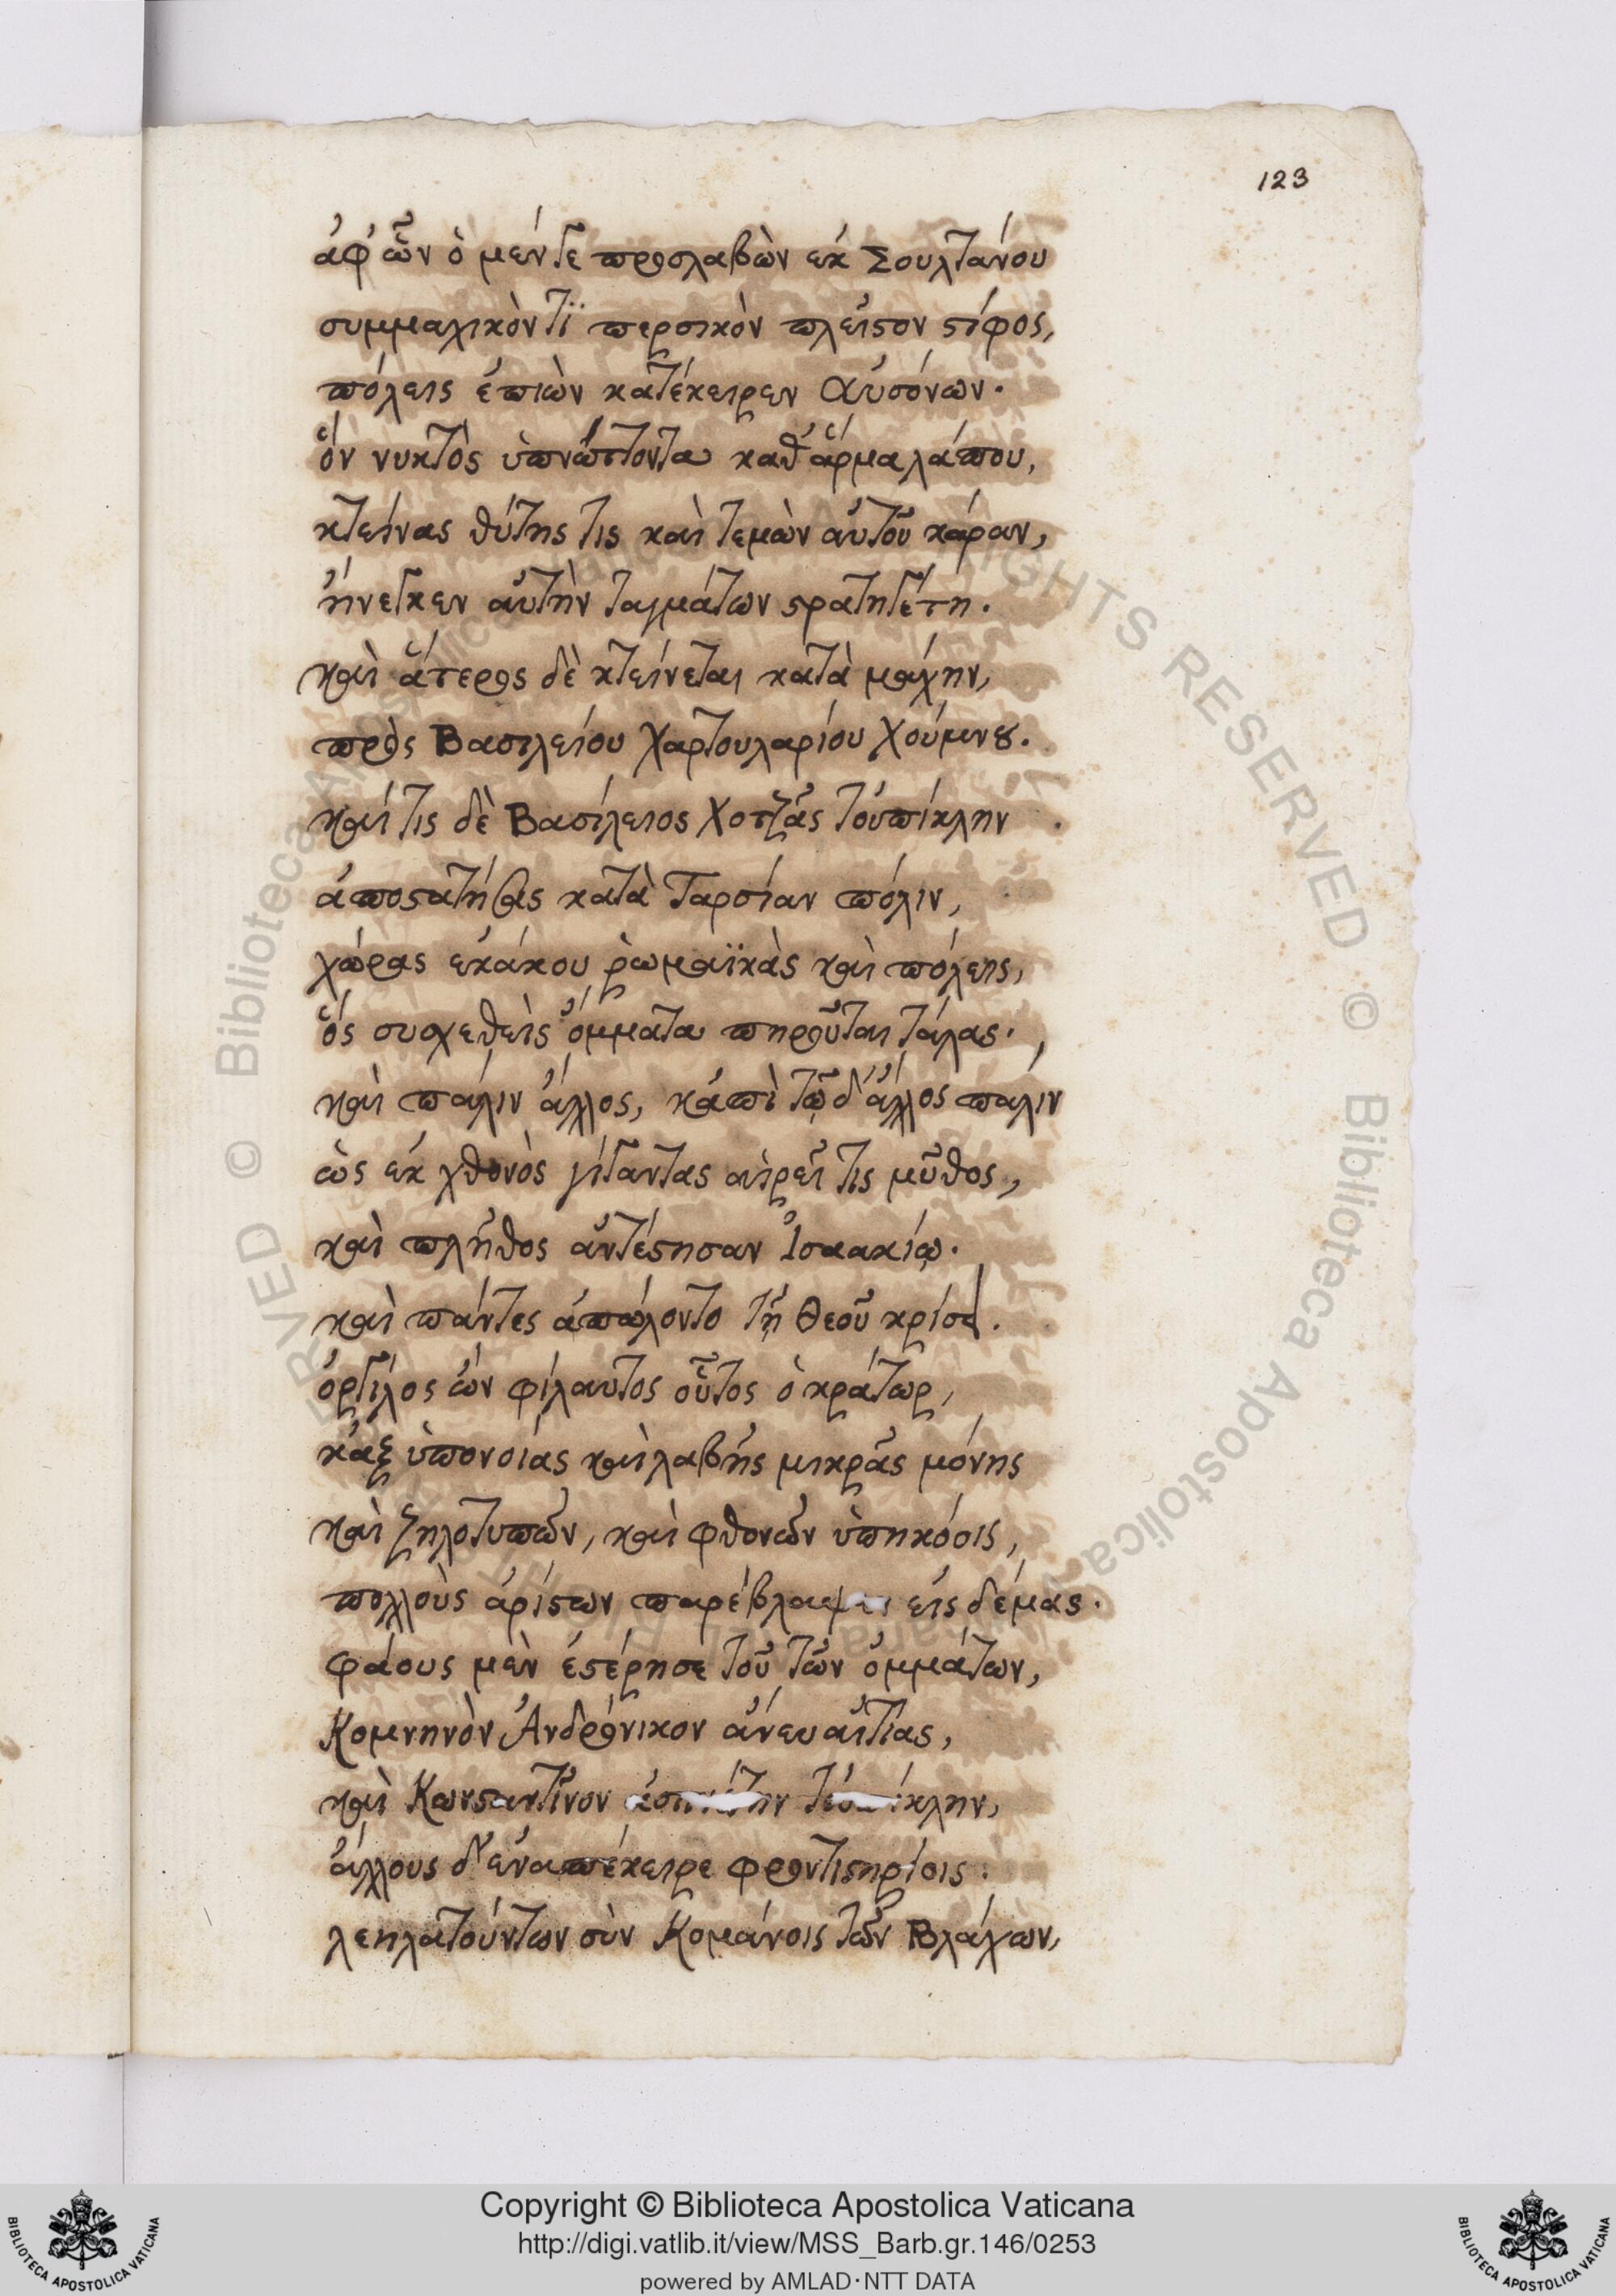 123
ἀφ' ὧν ὁ μέν γε προσλαβὼν ἐκ Σουλτάνου
συμμαχικὸν τὶ περσικὸν πλεῖστον στίφος,
πόλεις ἐπιὼν κατέκειρεν Αὐσόνων.
ὃν νυκτὸς ὑπνώττοντα καθ' ἁρμαλάπου,
κτείνας θύτης τις καὶ τεμὼν αὐτοῦ κάραν,
ἤνεγκεν αὐτὴν ταγμάτων στρατηγέτῃ.
καὶ ἅτερος δὲ κτείνεται κατὰ μάχην,
πρὸς Βασιλείου Χαρτουλαρίου Χούμνου.
καί τις δὲ Βασίλειος Χοτζᾶς τοὐπίκλην
ἀποστατήσας κατὰ Ταρσίαν πόλιν,
χώρας ἐκάκου ῥωμαϊκὰς καὶ πόλεις,
ὃς συσχεθεὶς ὄμματα πηροῦται τάλας.
καὶ πάλιν ἄλλος, κἀπὶ τῷδ' ἄλλος πάλιν
ὡς ἐκ χθονὸς γίγαντας αἱρεῖ τις μῦθος,
καὶ πλῆθος ἀντέστησαν Ἰσαακίῳ.
καὶ πάντες ἀπώλοντο τῇ Θεοῦ κρίσει.
ὀργίλος ὢν φίλαυτος οὗτος ὁ κράτωρ,
κἀξ ὑπονοίας καὶ λαβῆς μικρᾶς μόνης
καὶ ζηλοτυπῶν, καὶ φθονῶν ὑπηκόοις,
πολλοὺς ἀρίστων παρέβλαψεν εἰς δέμας.
φάους μὲν ἐστέρησε τοῦ τῶν ὀμμάτων,
Κομνηνὸν Ἀνδρόνικον ἄνευ αἰτίας,
καὶ Κωνσταντῖνον
ἄλλους δ' ἐναπέκειρε φροντιστηρίοις.
λεηλατούντων σὺν Κομάνοις τῶν Βλάχων,
Copyright © Biblioteca Apostolica Vaticana
http://digi.vatlib.it/view/MSS_Barb.gr.146/0253
powered by AMLAD·NTT DATA
BIBLIOTECA APOSTOLICA VATICANA
BIBLIOTECA APOSTOLICA VATICANA